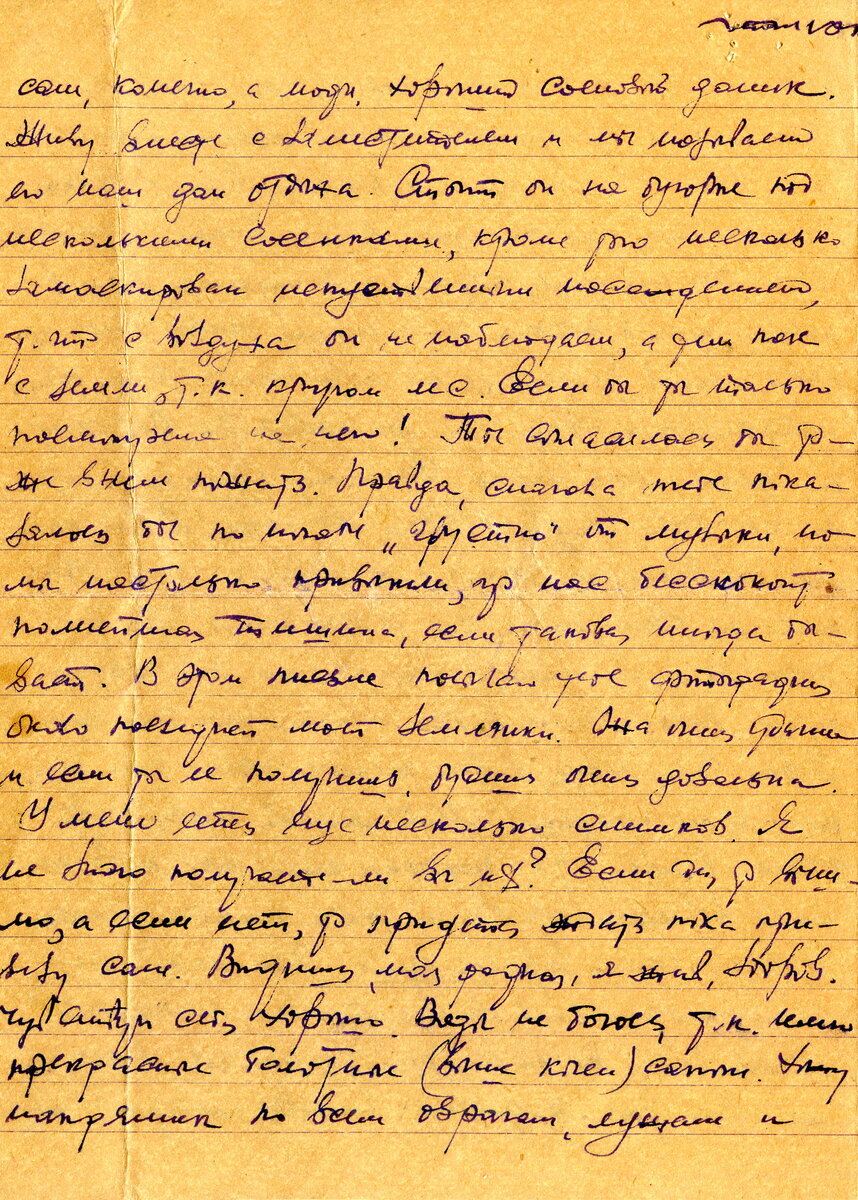 сам, конечно, а люди, хороший сосновый домик.
Живу вместе с заместителем и мы называем
его наш дом отдыха. Стоит он на бугорке под
несколькими сосенками, кроме того несколько
замаскирован искусственными насаждением,
т. что с воздуха он не наблюдаем, а тем паче
с земли, т.к. кругом лес. Если бы ты только
посмотрела на него! Ты согласилась бы то-
же в нем пожить. Правда, сначала тебе пока-
залось бы по ночам „грустно" от музыки, но
мы настолько привыкли, что нас беспокоит
полнейшая тишина, если таковая иногда бы-
вает. В этом письме посылаю тебе фотографию
около последней моей землянки. Она очень удачна
и если ты ее получишь, будешь очень довольна.
У меня есть еще несколько снимков. Я
не знаю получаете ли вы их? Если да, то
а если нет, то придется ждать пока при-
везу сам. Видишь, моя родная, я жив, здоров.
Чувствую себя хорошо. Воды не боюсь, т.к. имею
прекрасные болотные (выше колен) сапоги. Хожу
напрямик по всем оврагам, лужам и